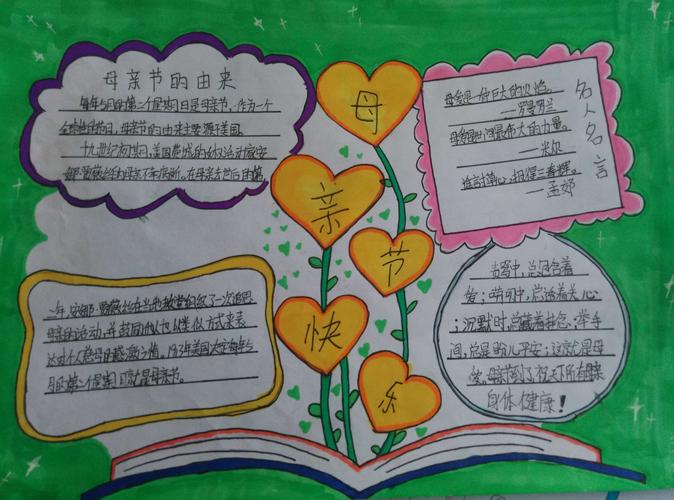 母亲节的由来
每年5月的第二个星期日是母亲节,作为一个
全球性的节日,母亲节的由来主要源于美国。
十九世纪初期,美国费城的
母
亲
节
快
乐
名人名言
母爱是一种巨大的火焰。
——罗曼罗兰
母爱是世间最伟大的力量。
——米尔
谁言寸草心,报得三春晖。
——孟郊
一年,安娜
母亲的活动,并鼓励他人也以类似方式来表
达对个人慈母的感激之情。
月的第二个星期日就是母亲节。
责骂中,总包含着
爱;萌动中,总透着关心
;沉默时,总藏着挂念;举手
间,总是盼儿平安;这就是母
爱,母亲节到了祝天下所有母亲
身体健康!